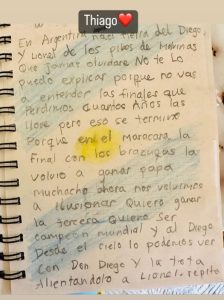 Thiago❤️
En Argentina nací tierra del Diego
y Lionel de los pibes de Malvinas
Que jamas olvidare No te lo
puedo explicar porque no vas
a entender las finales que
Perdimos Cuantos Años las
llore pero eso se termino
Porque en el maracana la
final con los brazucas la
volvio a ganar papá
muchacho ahora nos volvimos
a ilusionar Quiero ganar
la tercera Quiero ser
campeon mundial y al Diego
Desde el cielo lo podemos ver
con Don Diego y la tota
Alientandolo a Lionel